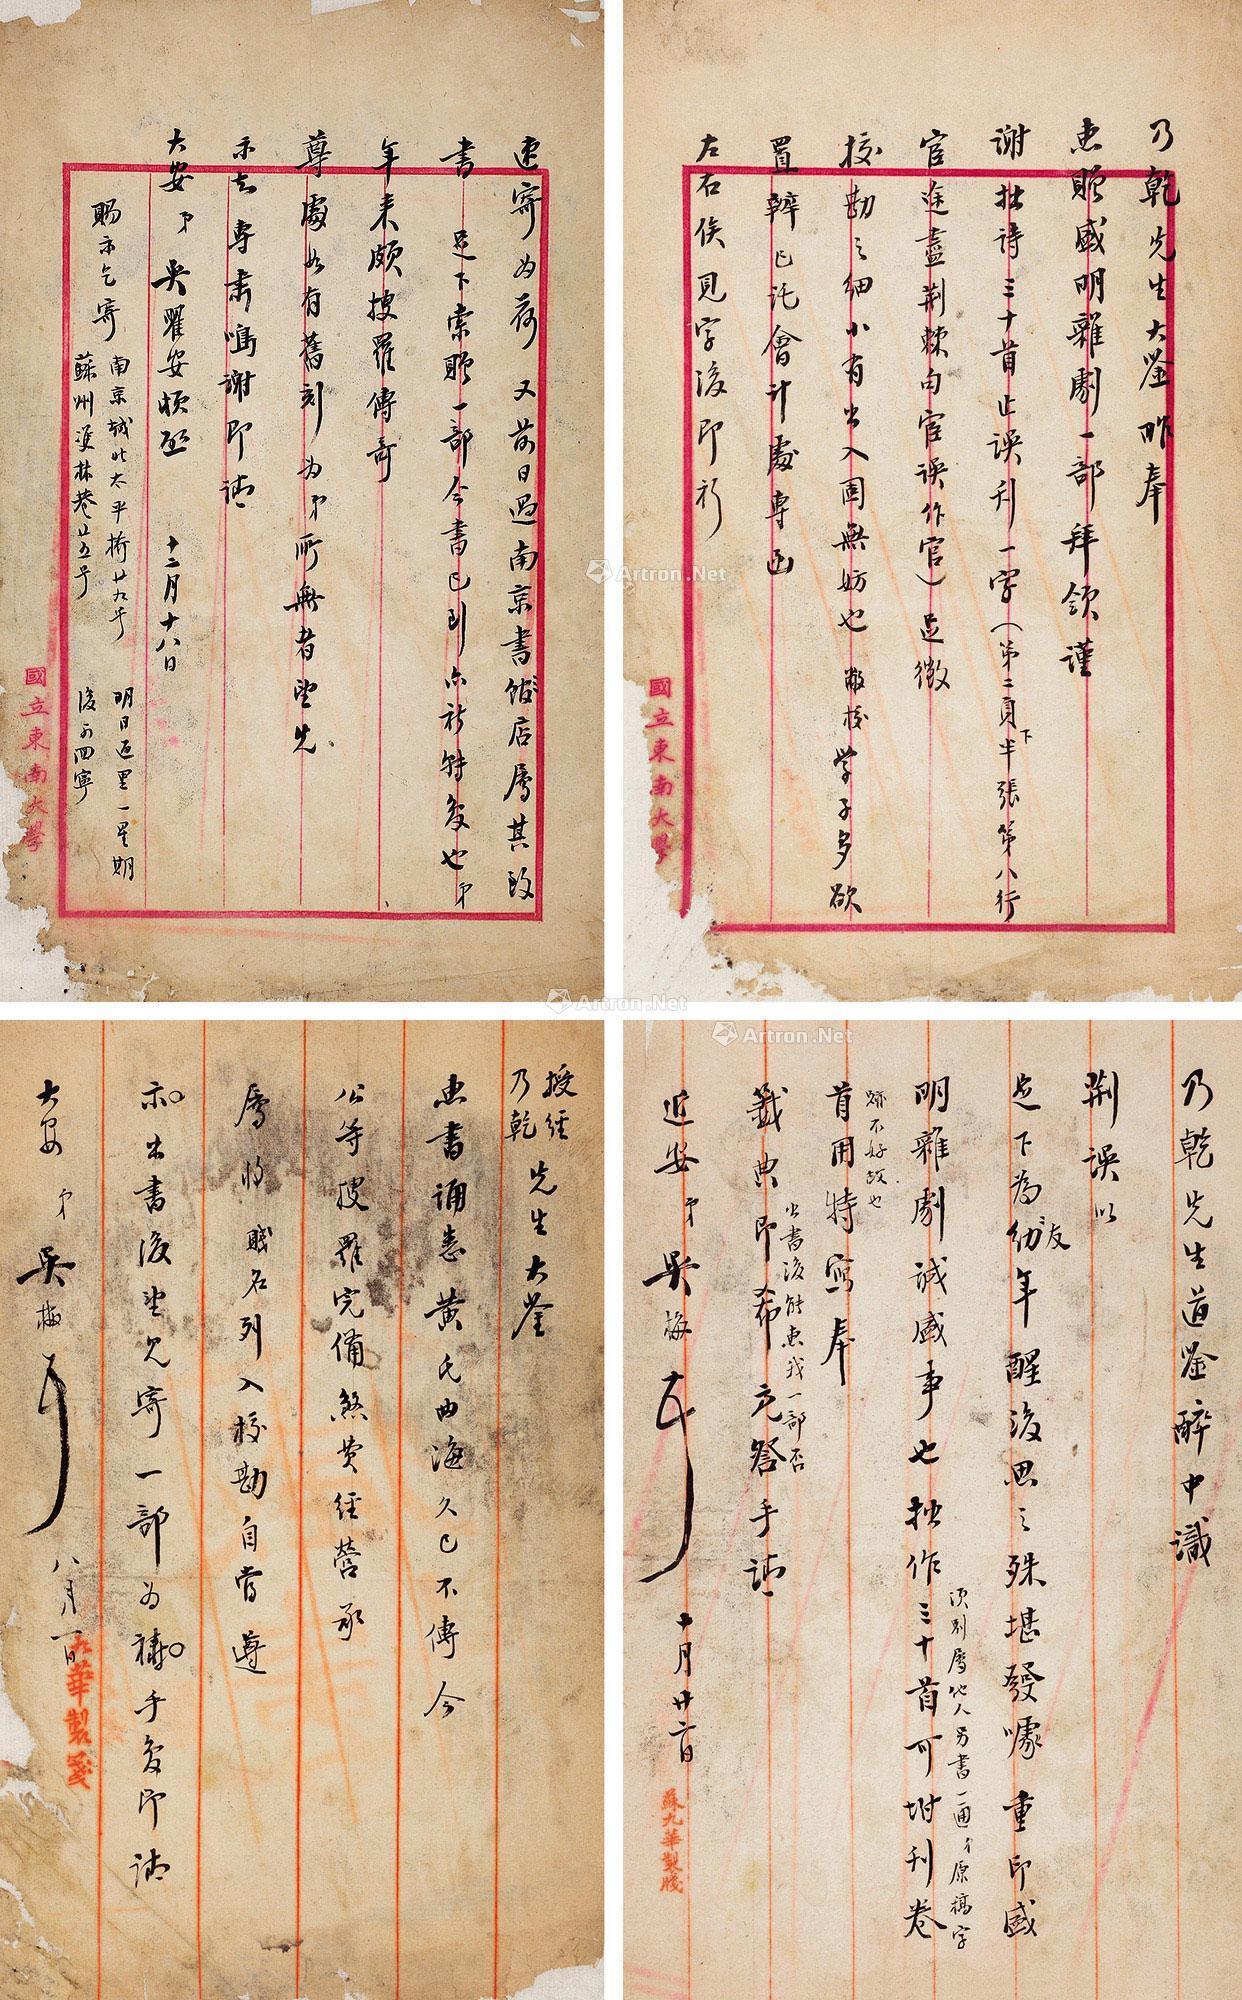 乃乾先生大鉴昨奉
惠贈盛明雜劇一部拜領謹
謝拙詩三十首止誤刊一字（第二頁下半張第八行
宦途盡荆棘句宦誤作官）足徵
校勘之細小有出入固無妨也敝校學子多欲
置辦已託會計處專函
左右俟見字後即祈
國立東南大學
速寄为荷又前日過南京書館店屬其致
書足下索贈一部今書已到亦祈特复也弟
年来頗搜羅傳奇
尊處如有舊刻为弟所無者望先
示知專肃鳴謝即請
大安弟吳瞿安頓啟十二月十八日
賜示乞寄南京城北太平橋廿九号
蘇州蒲林巷廿五号
明日返里一星期
後可回寧
國立東南大學
乃乾先生道鉴醉中識
荆誤以
足下為幼年友醒後思之殊堪發噱重印盛
明雜劇誠盛事也拙作三十首可坿刊卷
須别屬他人另書一通弟原稿字
跡不好故也
首用特寫奉
出書後能惠我一部否
籖典即希亮詧手請
近安弟吳梅頓十月廿二日
蘇九華製牋
授經
乃乾先生大鉴
惠書诵悉黄氏曲海久已不傳今
公等搜羅完備煞费經营承
屬將賤名列入校勘自當遵
示出書後望先寄一部为禱手复即請
大安弟吳梅頓八月一日
九華製箋
Artron.Net
Artron.Net
Artron.Net
Artron.Net